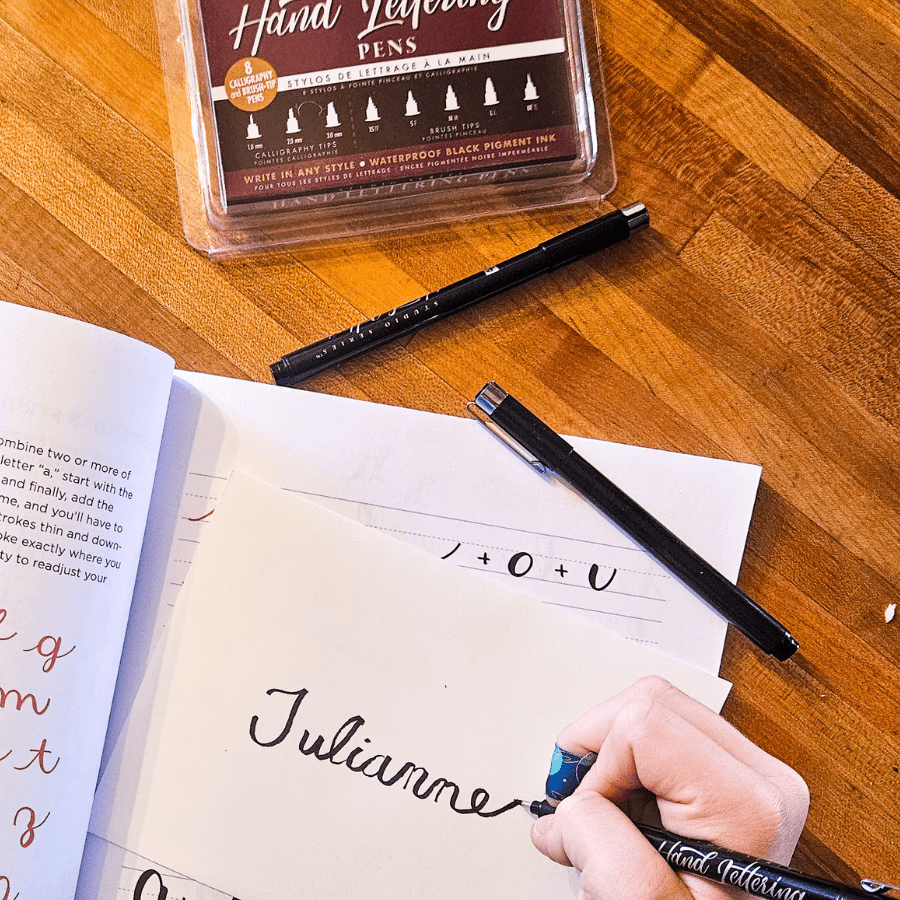 Hand Lettering
PENS
STYLOS DE LETTRAGE À LA MAIN
8 STYLOS À POINTE PINCEAU ET CALLIGRAPHIE
8
CALLIGRAPHY
and BRUSH-TIP
PENS
1.0 mm 2.0 mm 3.0 mm
CALLIGRAPHY TIPS
POINTES CALLIGRAPHIE
BRUSH TIPS
POINTES PINCEAU
WRITE IN ANY STYLE • WATERPROOF BLACK PIGMENT INK
POUR TOUS LES STYLES DE LETTRAGE • ENCRE PIGMENTÉE NOIRE IMPERMÉABLE
HAND LETTERING PENS
STUDIO SERIES
ombine two or more of
letter "a," start with the
and finally, add the
me, and you'll have to
trokes thin and down-
oke exactly where you
ty to readjust your
g
m
t
z
+ O + U
Julianne
Hand Lettering